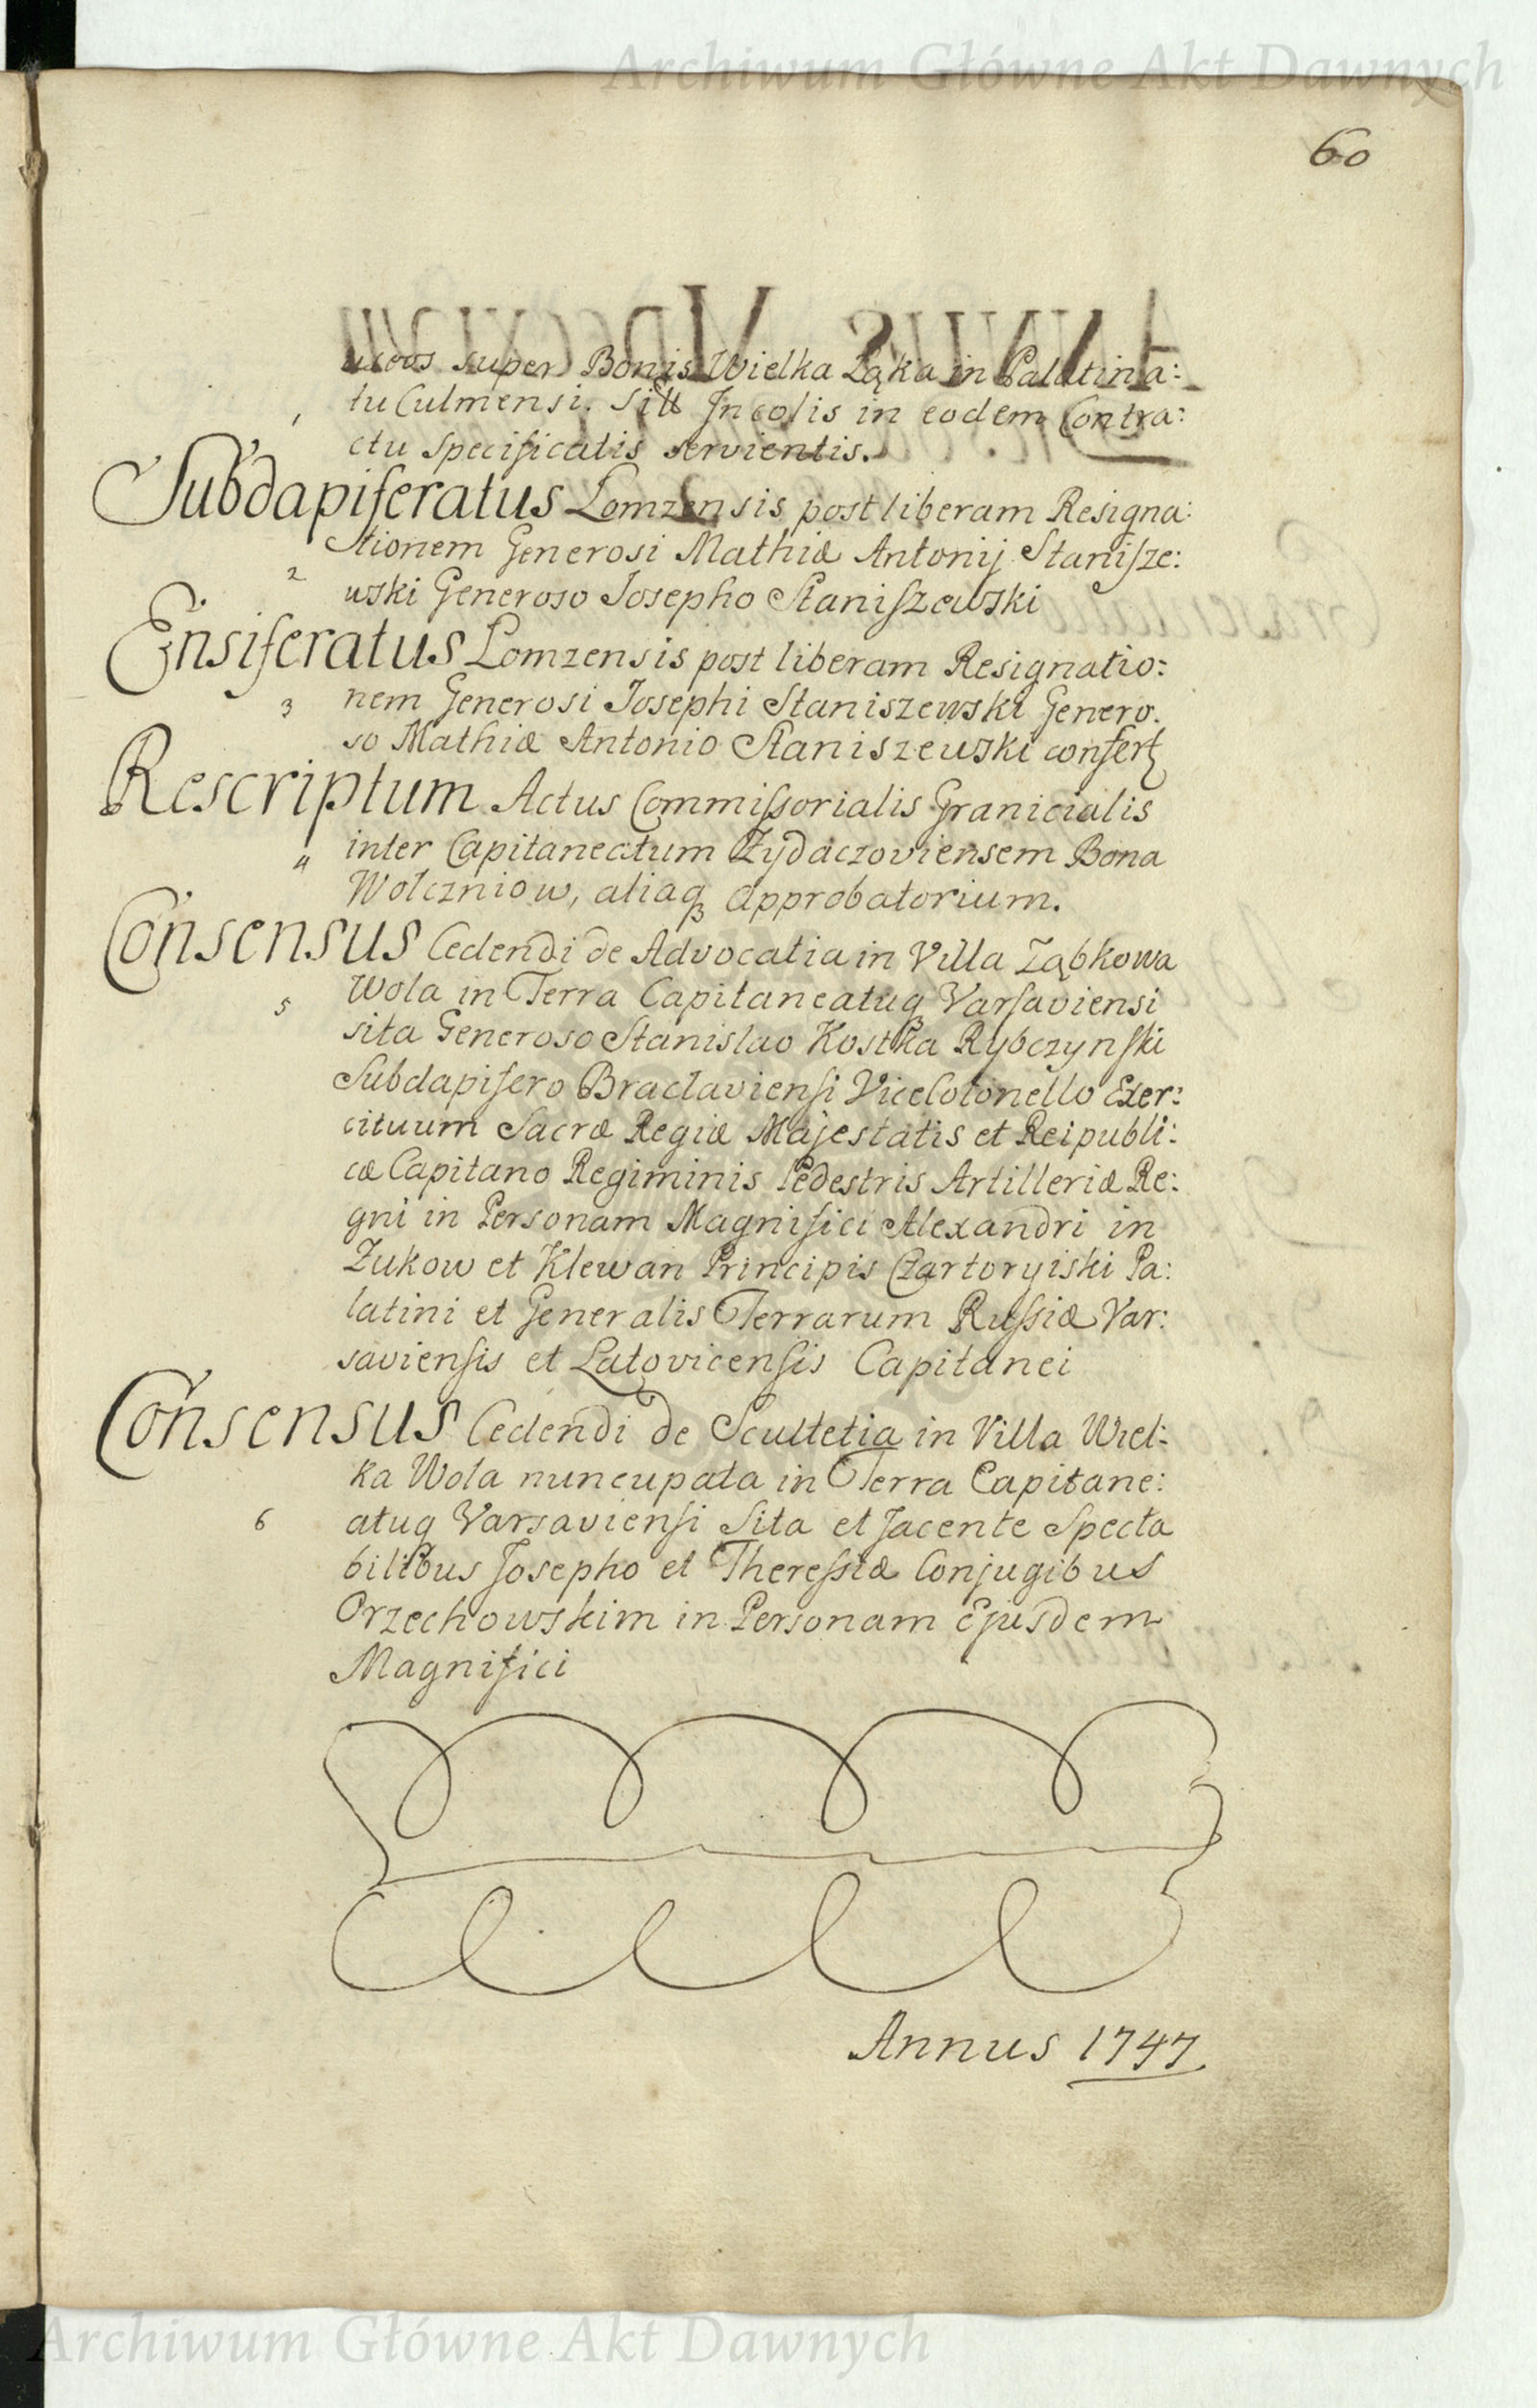 Archiwum Główne Akt Dawnych
60
super Bonis Wielka Łąka in Palatina:
1 tu Culmensi. Incolis in eodem Contra:
ctu Specificatis servientis.
Subdapiferatus Lomzensis post liberam Resigna:
tionem Generosi Mathiæ Antonij Stanisze:
2 wski Generoso Josepho Staniszewski
Ensiferatus Lomzensis post liberam Resignatio:
3 nem Generosi Josephi Staniszewski Genero.
so Mathiæ Antonio Staniszewski confert
Rescriptum Actus Commissorialis Granicialis
4 inter Capitaneatum Zydaczoviensem Bona
Wolczniow, aliaq approbatorium.
Consensus Cedendi de Advocatia in Villa Ząbkowa
5 Wola in Terra Capitaneatuq Varsaviensi
sita Generoso Stanislao Kostka Rybczynski
Subdapifero Braclaviensi ViceColonello Exer:
cituum Sacræ Regiæ Majestatis et Reipubli:
cæ Capitano Regiminis Pedestris Artilleriæ Re:
gni in Personam Magnifici Alexandri in
Zukow et Klewan Principis Czartoryiski Pa:
latini et Generalis Terrarum Russiæ Var:
saviensis et Latovicensis Capitanei
Consensus Cedendi de Scultetia in Villa Wiel:
ka Wola nuncupata in Terra Capitane:
6 atuq Varsaviensi Sita et Jacente Specta
bilibus Josepho et Theressiæ Conjugibus
Orzechowskim in Personam Ejusdem
Magnifici
Annus 1747.
Archiwum Główne Akt Dawnych